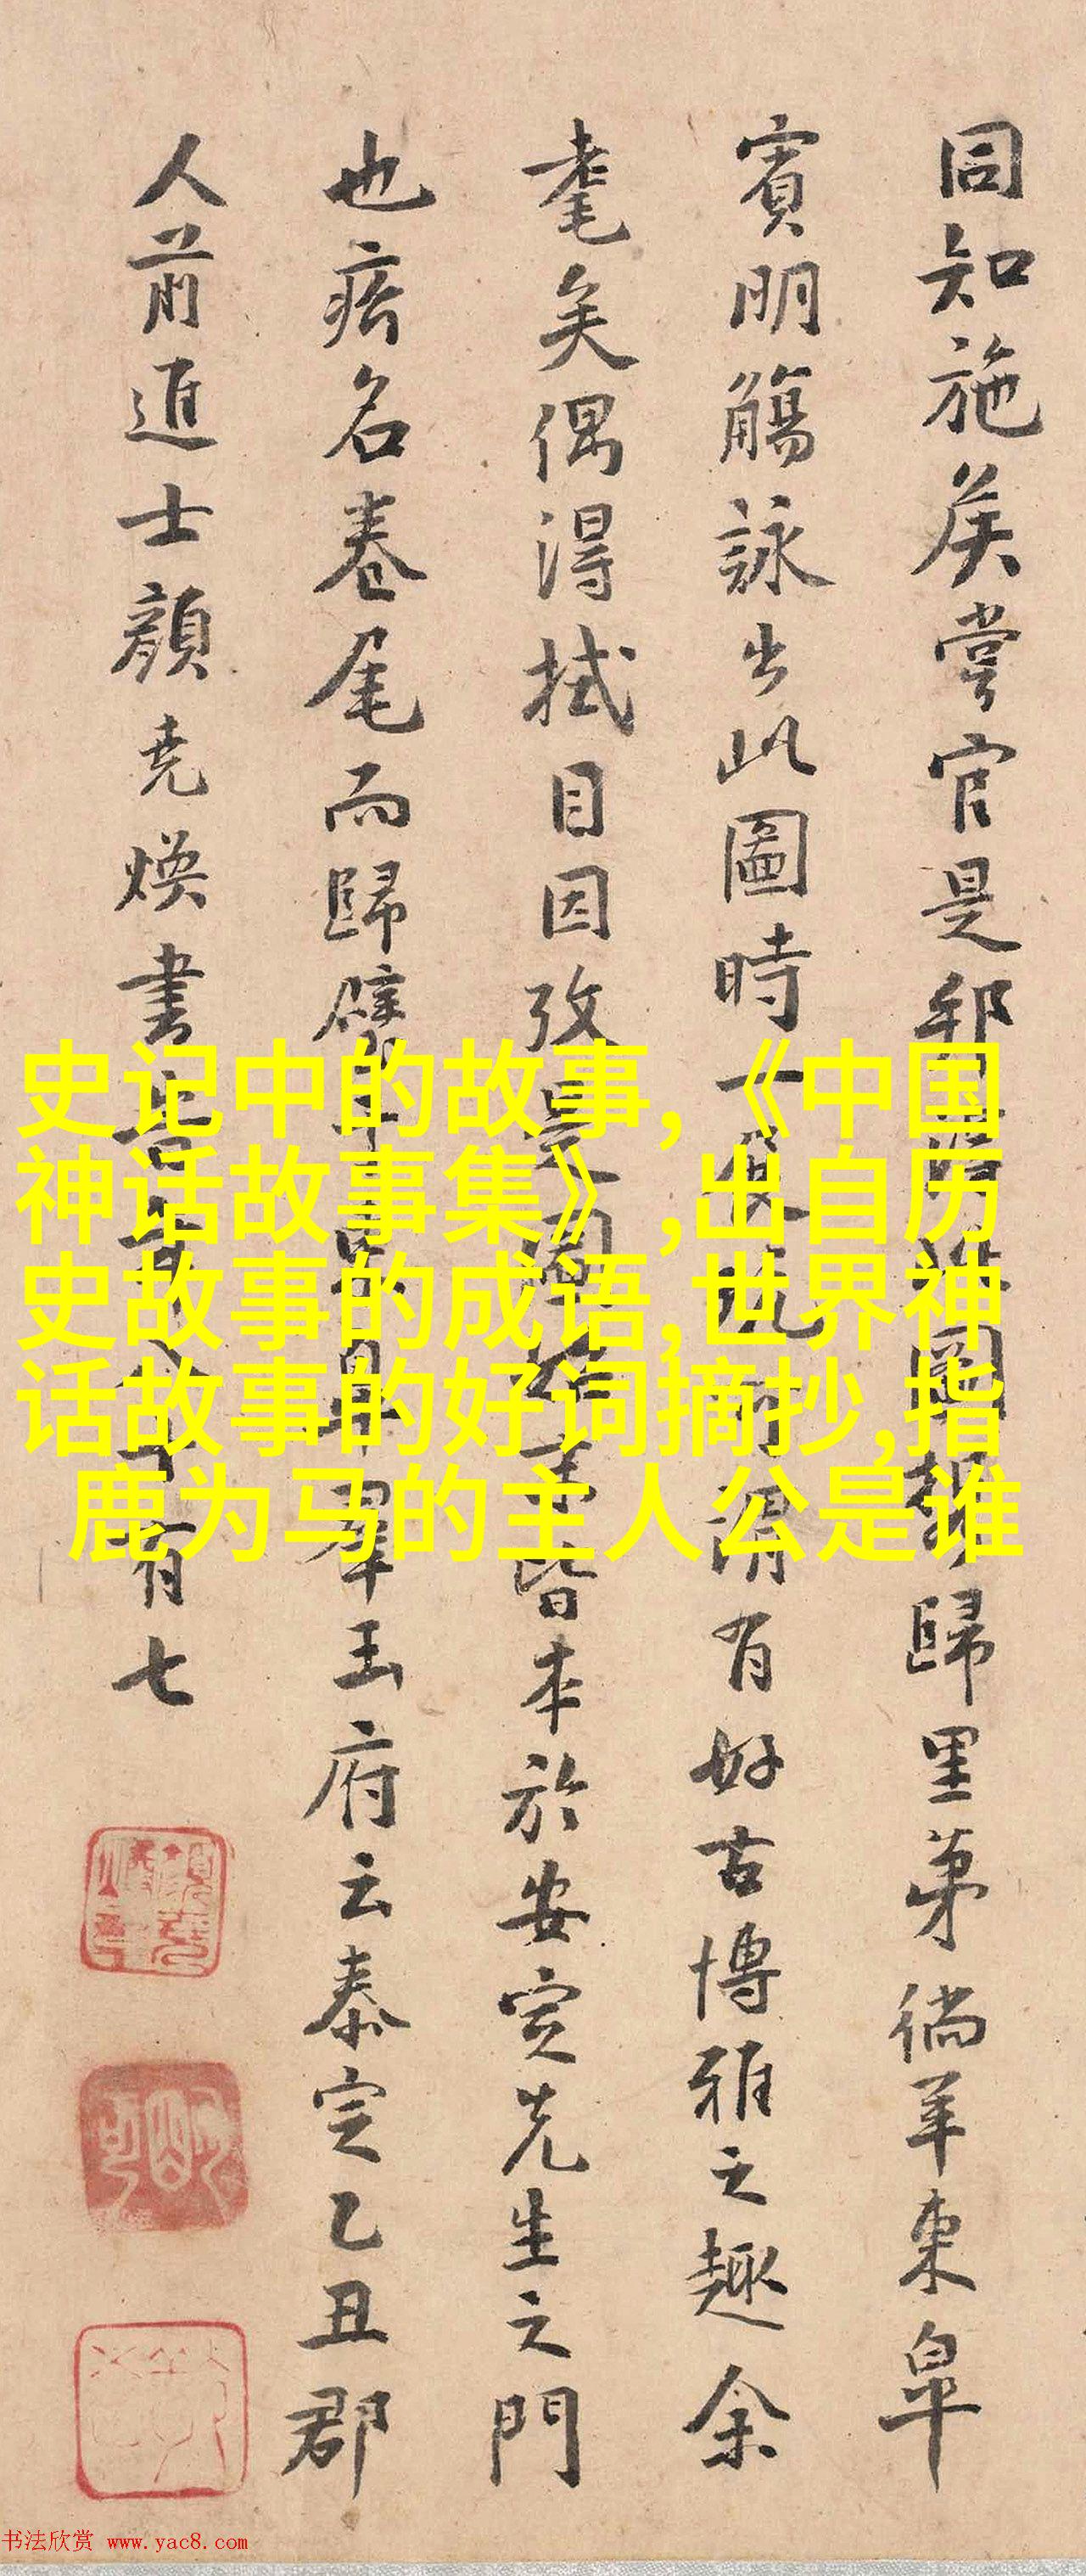 同知施侯嘗官是邦
圖 歸里弟徜羊東皐
賓明觴詠出此圖時一
謂有好古博雅之趣余
耄矣偶得拭目因攷是圖
皆本於安定先生之門
也瘖名卷尾而歸
羣玉府云泰定乙丑郡
人前進士顏堯煥書
有七
史记中的故事,《中国
神话故事集》,出自历
史故事的成语,世界神
话故事的好词摘抄,指
鹿为马的主人公是谁
书法欣赏 www.yac8.com